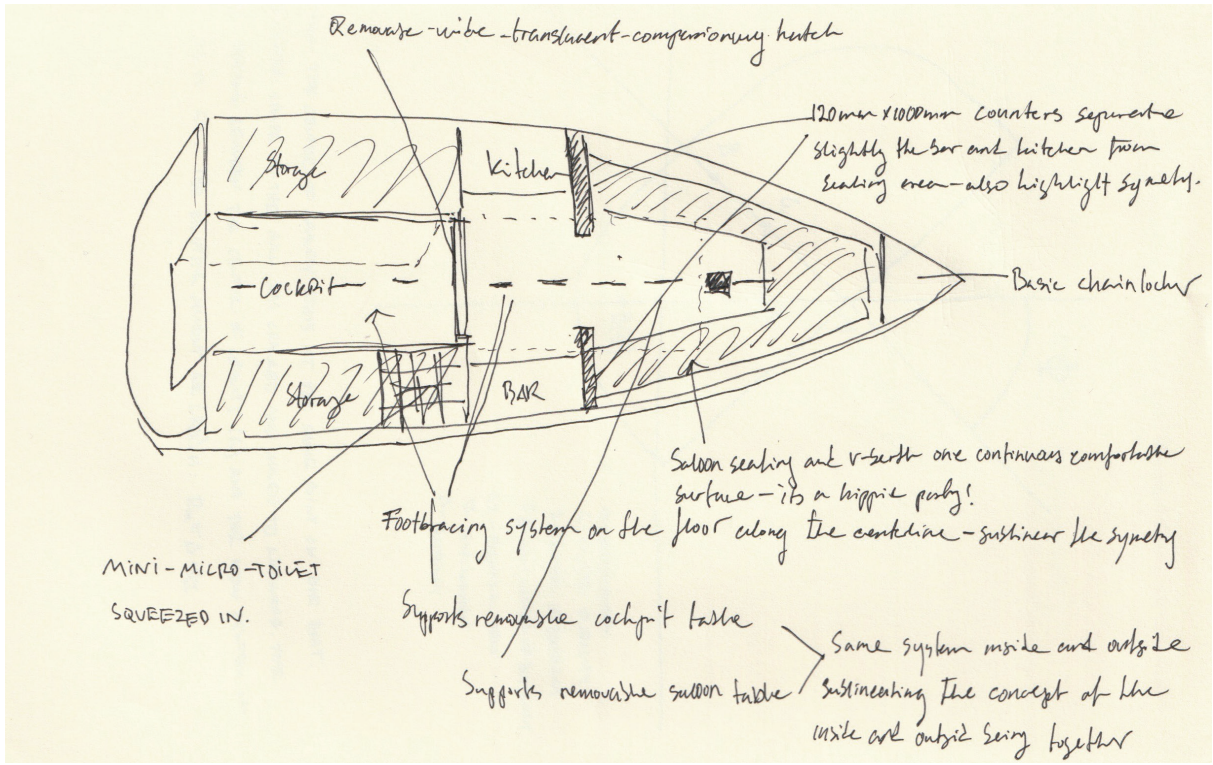 Removable-wide-translucent-companionway hatch
120mm x 1000mm counters separate
slightly the bar and kitchen from
seating area - also highlight symetry.
Storage
Kitchen
COCKPIT
Basic chainlocker
Storage
BAR
Saloon seating and v-berth one continuous comfortable
surface - its a hippie party!
Footbracing system on the floor along the centerline - sublinear the symetry
MINI-MICRO-TOILET
SQUEEZED IN.
Supports removable cockpit table
Supports removable saloon table
Same system inside and outside
sublineating the concept of the
inside and outsid being together